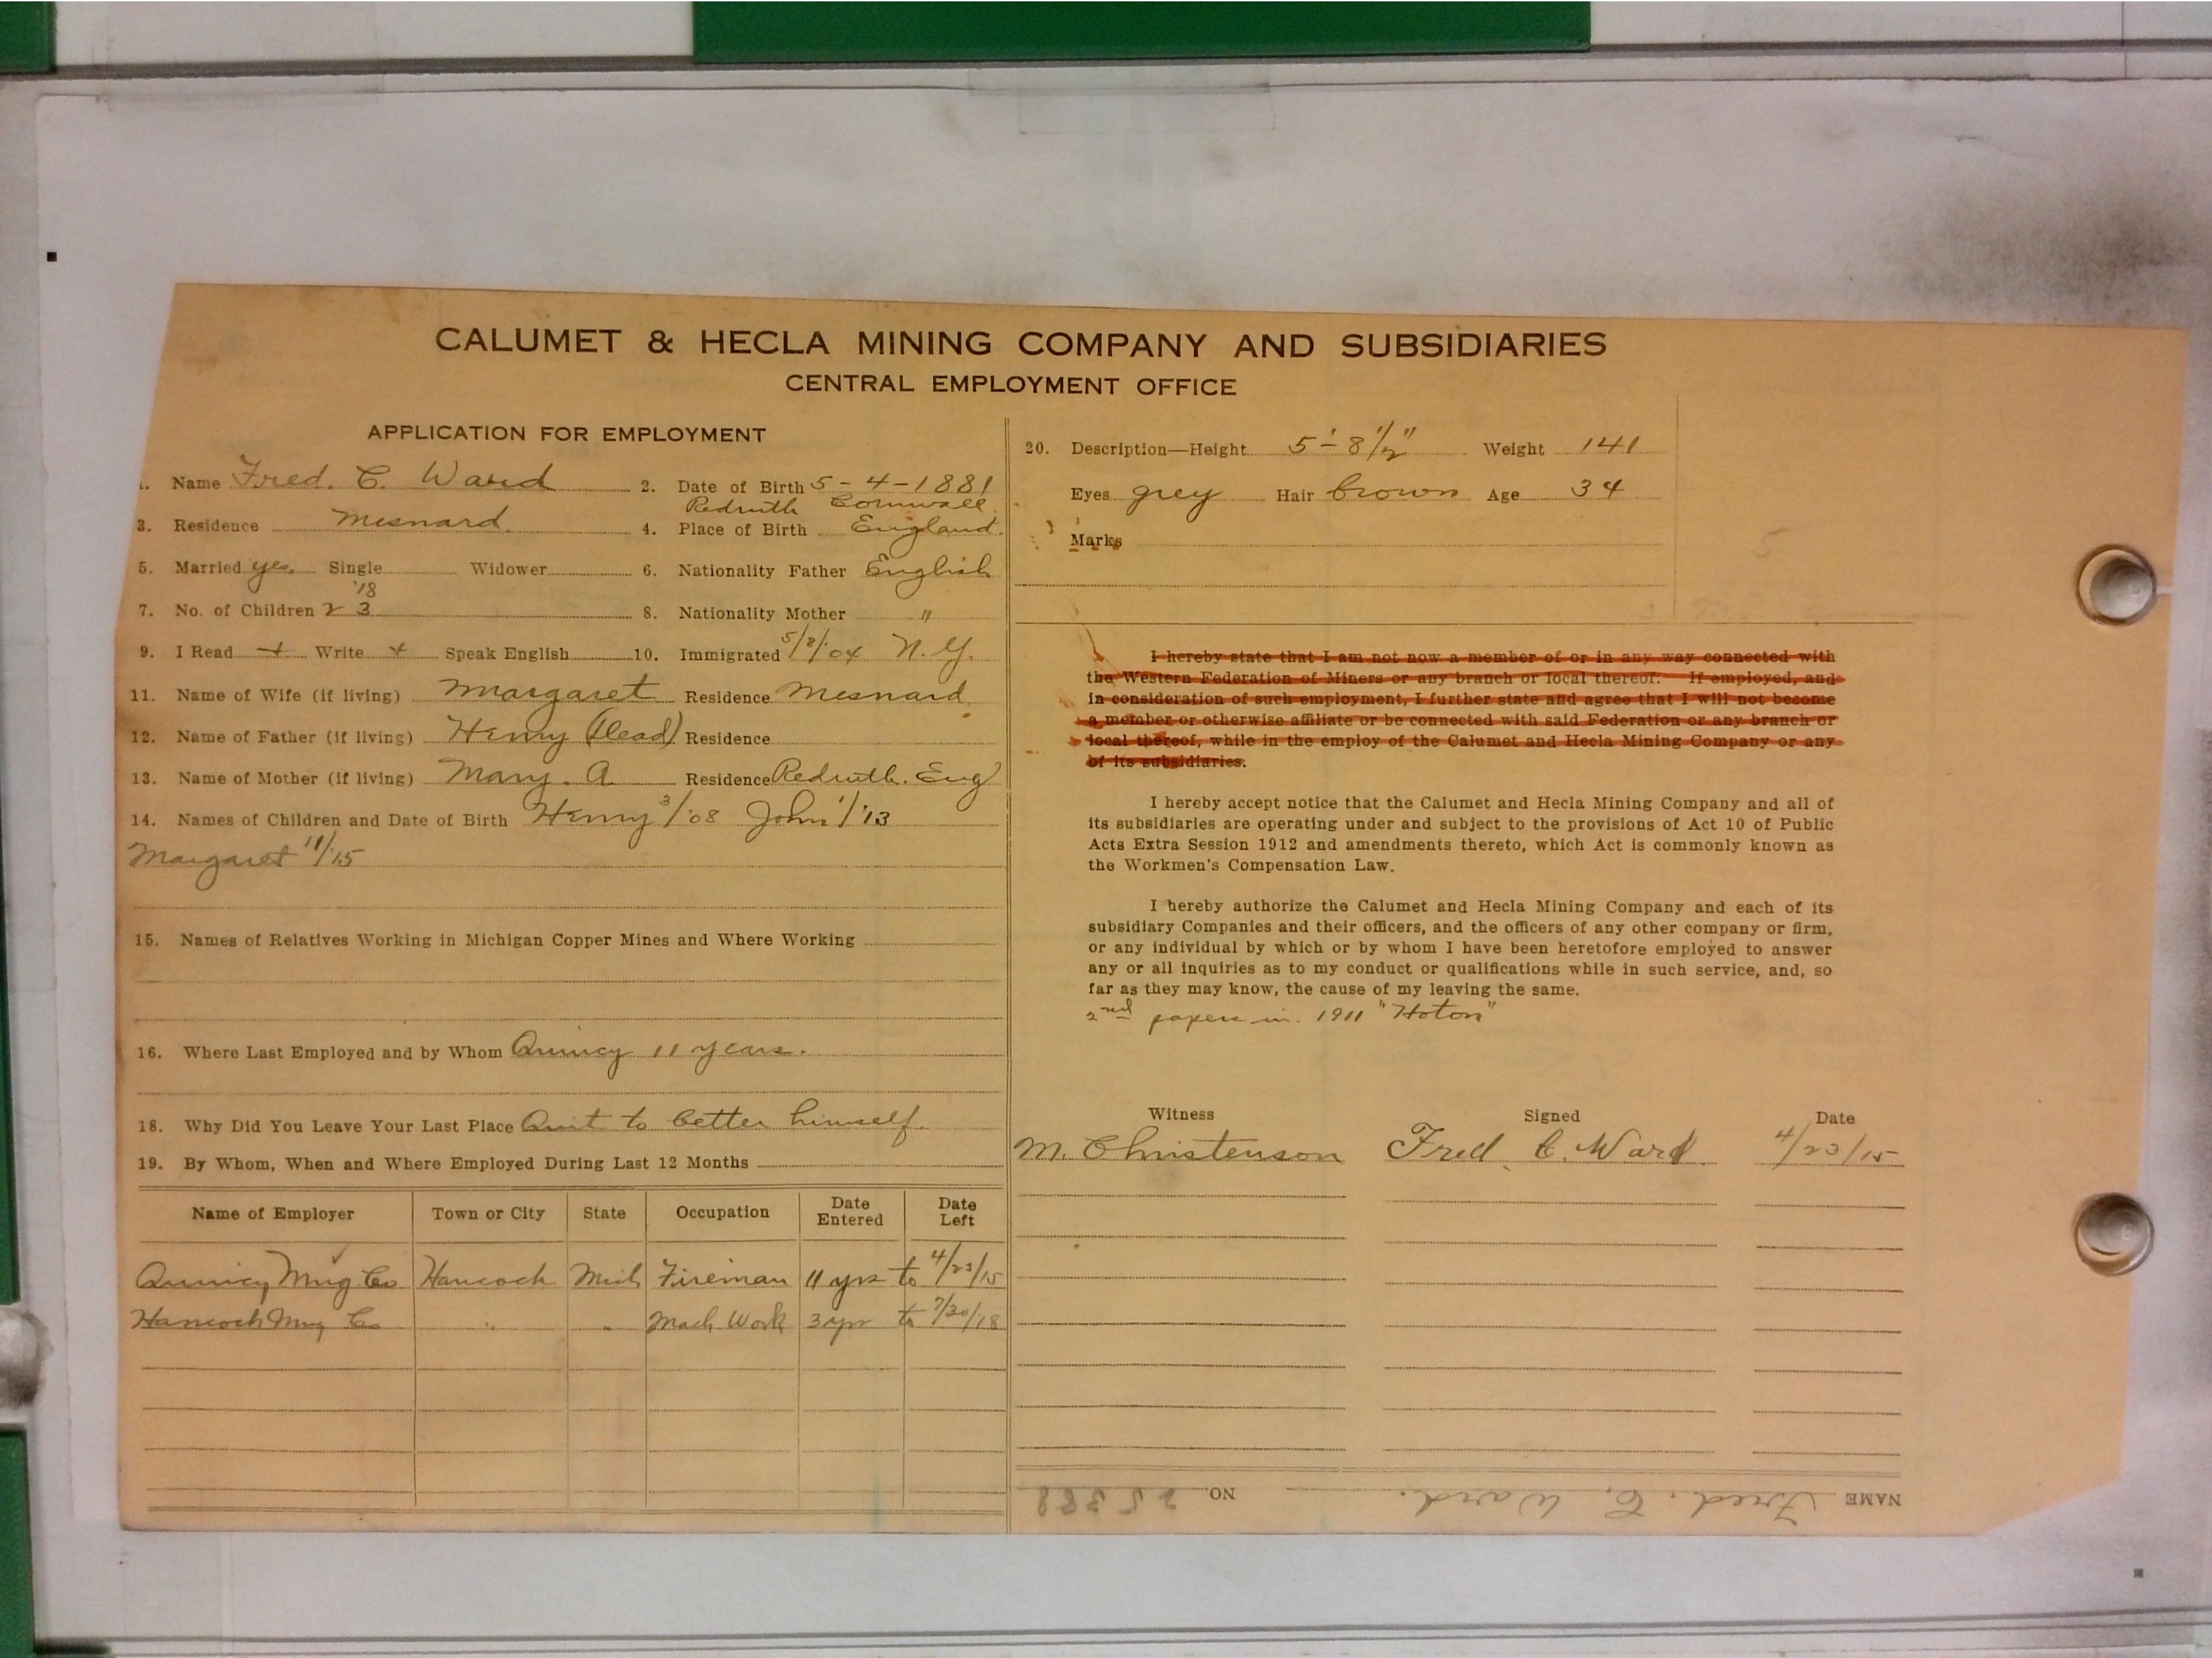 CALUMET & HECLA MINING COMPANY AND SUBSIDIARIES
CENTRAL EMPLOYMENT OFFICE
APPLICATION FOR EMPLOYMENT
1. Name Fred. C. Ward 2. Date of Birth 5-4-1881
Redruth Cornwall
3. Residence Mesnard. 4. Place of Birth England.
5. Married yes. Single Widower 6. Nationality Father English
'18
7. No. of Children 2 3 8. Nationality Mother "
9. I Read + Write + Speak English 10. Immigrated 5/8/'04 N.Y.
11. Name of Wife (if living) Margaret Residence Mesnard
12. Name of Father (if living) Henry (Dead) Residence
13. Name of Mother (if living) Mary. A Residence Redruth. Eng
14. Names of Children and Date of Birth Henry 3/'08 John 1/'13
Margaret 11/'15
15. Names of Relatives Working in Michigan Copper Mines and Where Working
16. Where Last Employed and by Whom Quincy 11 years.
18. Why Did You Leave Your Last Place Quit to better himself.
19. By Whom, When and Where Employed During Last 12 Months
Name of Employer Town or City State Occupation Date Entered Date Left
Quincy Mng Co Hancock Mich Fireman 11 yrs to 4/23/15
Hancock Mng Co " " Mach Work 3 yrs to 7/30/18
20. Description—Height 5'-8 1/2" Weight 141
Eyes grey Hair brown Age 34
Marks
I hereby state that I am not now a member of or in any way connected with
the Western Federation of Miners or any branch or local thereof. If employed, and
in consideration of such employment, I further state and agree that I will not become
a member or otherwise affiliate or be connected with said Federation or any branch or
local thereof, while in the employ of the Calumet and Hecla Mining Company or any
of its subsidiaries.
I hereby accept notice that the Calumet and Hecla Mining Company and all of
its subsidiaries are operating under and subject to the provisions of Act 10 of Public
Acts Extra Session 1912 and amendments thereto, which Act is commonly known as
the Workmen's Compensation Law.
I hereby authorize the Calumet and Hecla Mining Company and each of its
subsidiary Companies and their officers, and the officers of any other company or firm,
or any individual by which or by whom I have been heretofore employed to answer
any or all inquiries as to my conduct or qualifications while in such service, and, so
far as they may know, the cause of my leaving the same.
2nd papers in. 1911 "Hoton"
Witness Signed Date
M. Christenson Fred. C. Ward 4/23/15
NAME Fred. C. Ward. NO. 25388